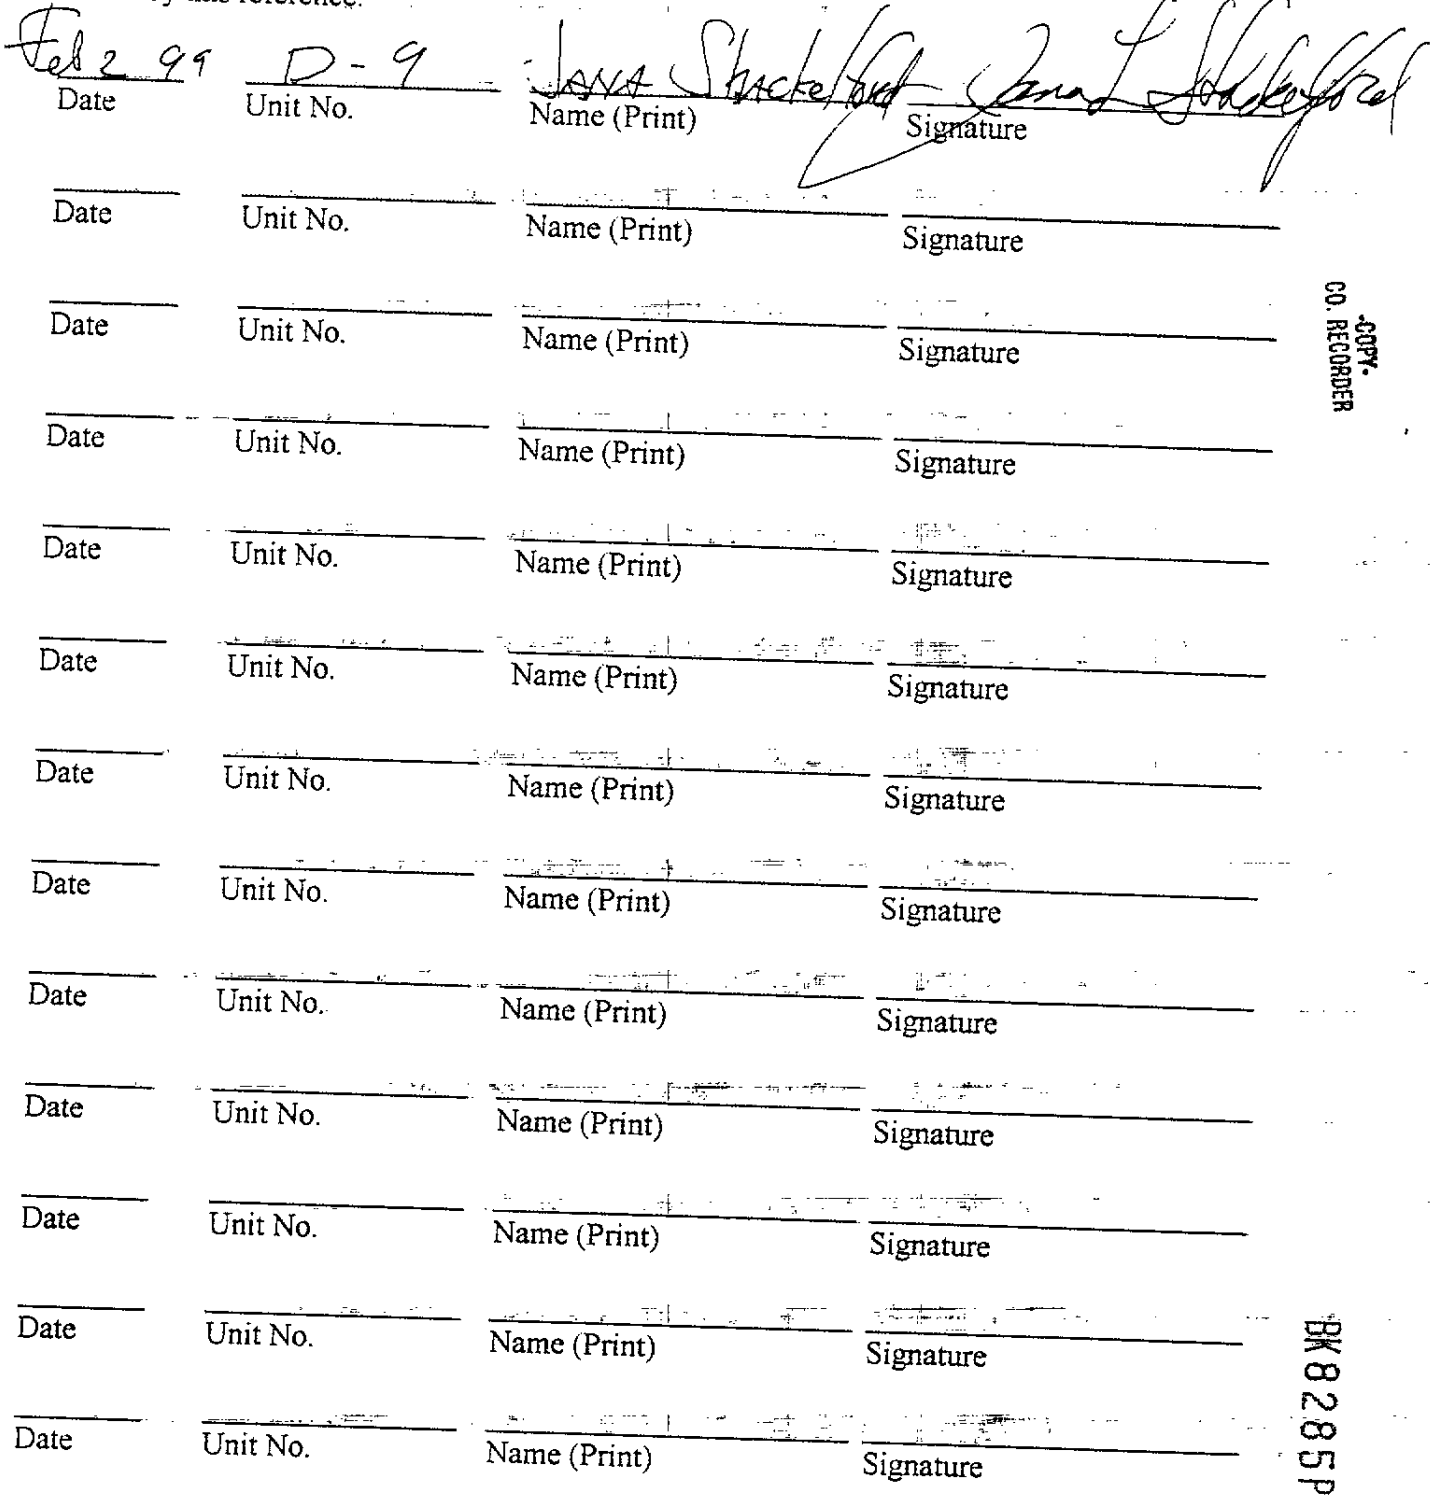 this reference.
Feb 2 99 D-9 - JANA Shackelford Jana L Shackelford
Date Unit No. Name (Print) Signature
Date Unit No. Name (Print) Signature
Date Unit No. Name (Print) Signature
Date Unit No. Name (Print) Signature
Date Unit No. Name (Print) Signature
Date Unit No. Name (Print) Signature
Date Unit No. Name (Print) Signature
Date Unit No. Name (Print) Signature
Date Unit No. Name (Print) Signature
Date Unit No. Name (Print) Signature
Date Unit No. Name (Print) Signature
Date Unit No. Name (Print) Signature
Date Unit No. Name (Print) Signature
-COPY-
CO. RECORDER
BK8285P